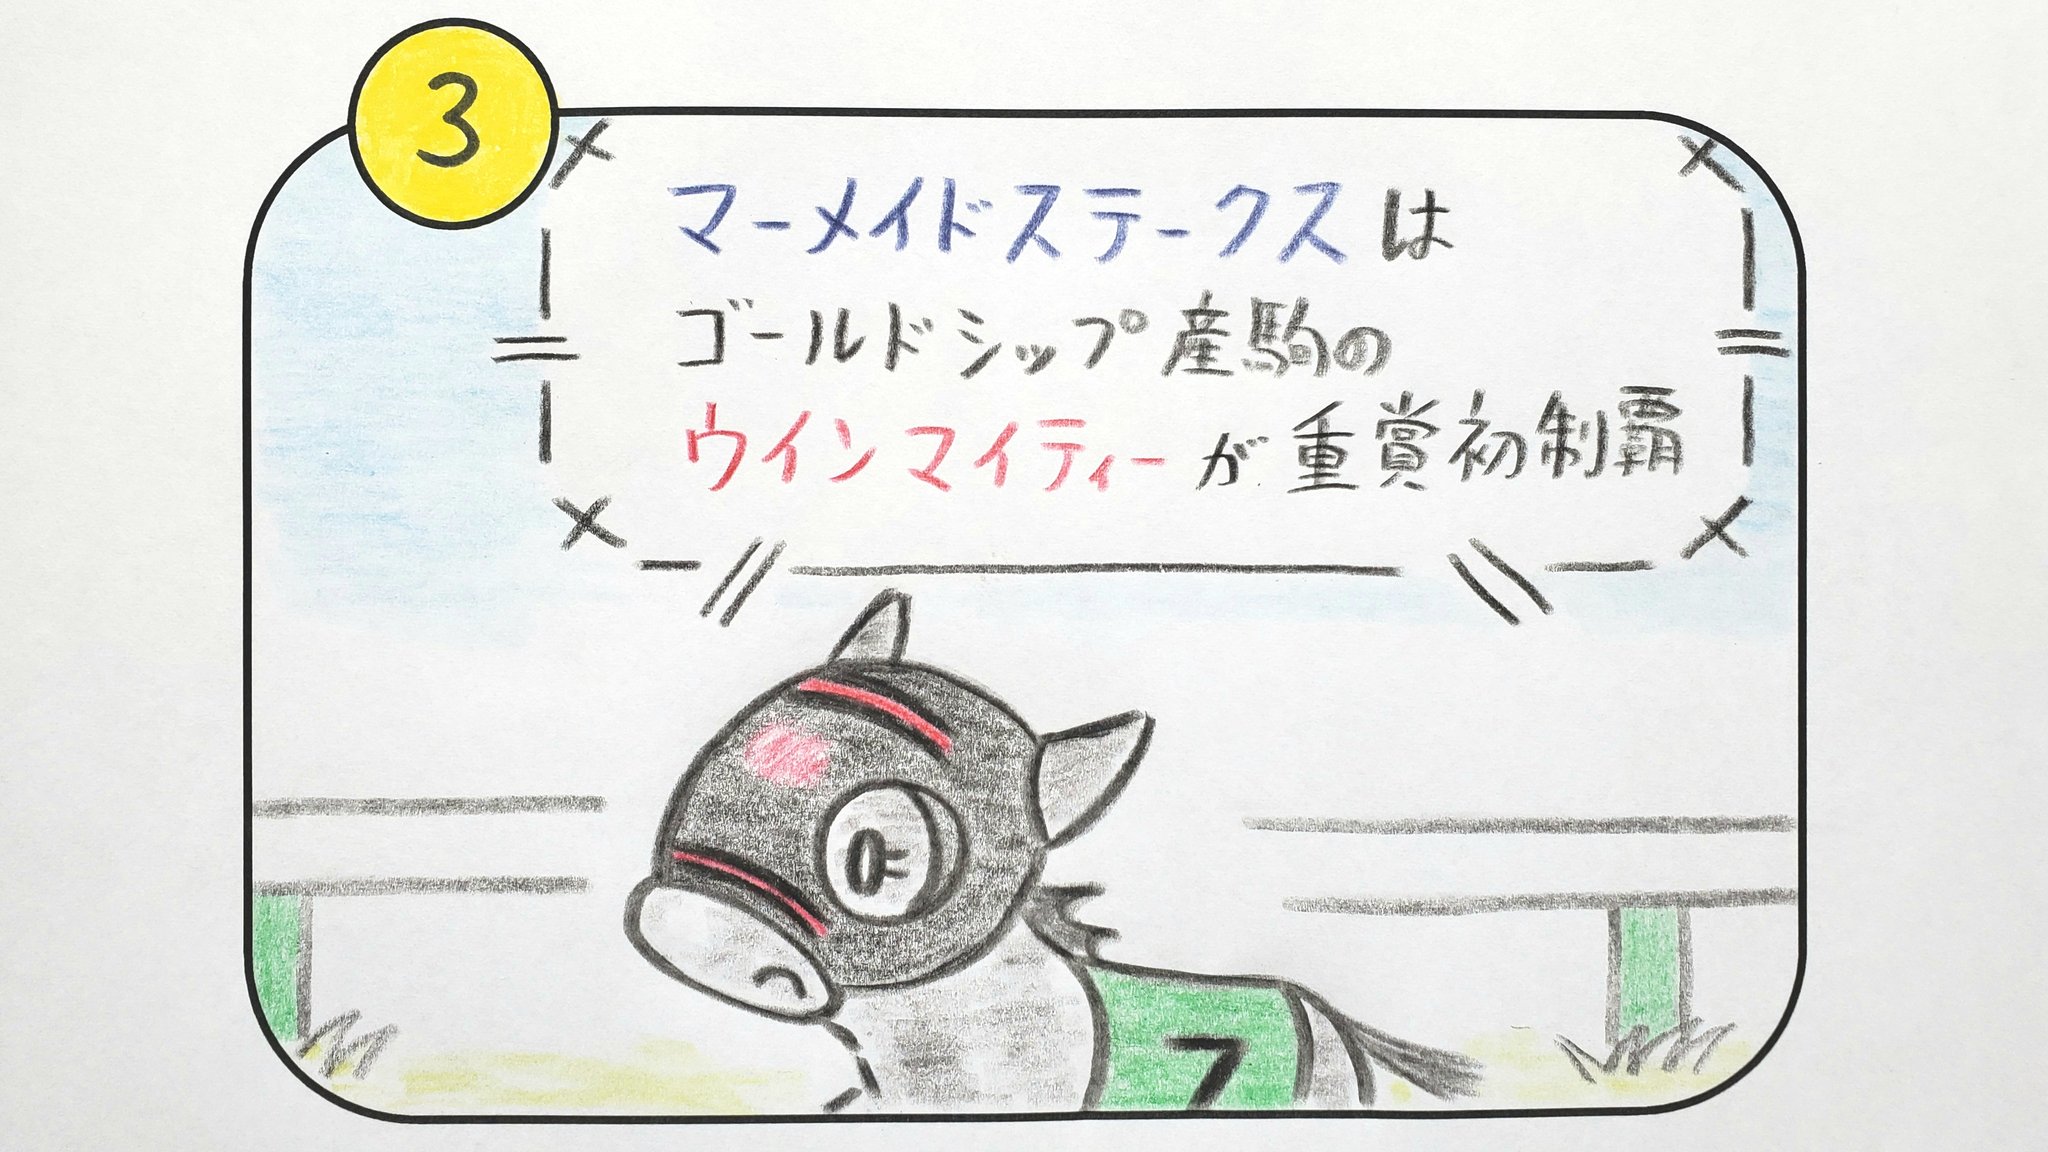 3
マーメイドステークスは
ゴールドシップ産駒の
ウインマイティーが重賞初制覇
7